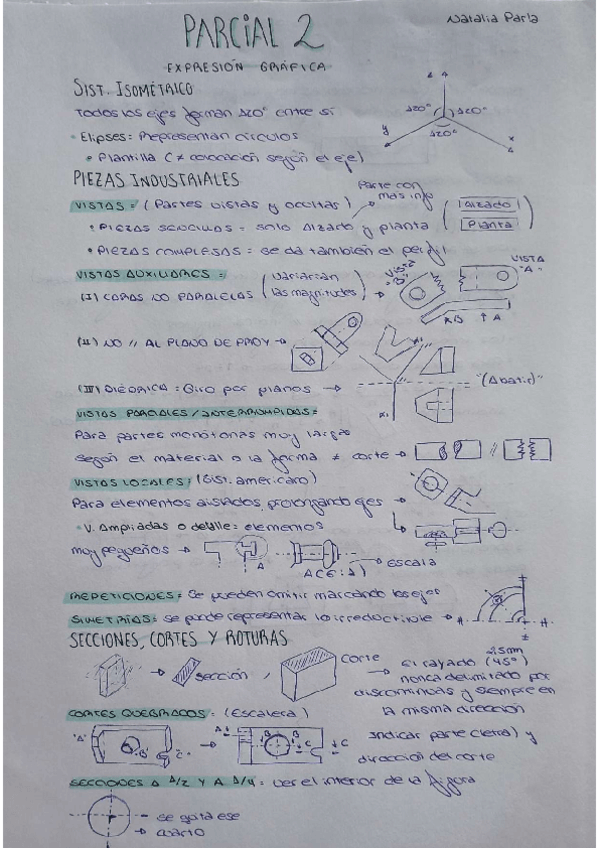 PARCIAL 2
Natalia Parla
EXPRESIÓN GRÁFICA
SIST. ISOMÉTRICO
Todos los ejes forman 120° entre sí
120° 120°
120°
y
x
• Elipses = Representan círculos
• Plantilla (≠ coloración según el eje)
PIEZAS INDUSTRIALES
Parte con
más info
VISTAS = (Partes vistas y ocultas)
Alzado
• PIEZAS SENCILLAS = solo alzado y planta
Planta
• PIEZAS COMPLEJAS = se da también el perfil
VISTAS AUXILIARES =
VISTA "B"
VISTA "A"
(I) CARAS NO PARALELAS (variarían las magnitudes)
B ↑ A
(II) NO // AL PLANO DE PROY →
(III) DIÉDRICA = Giro por planos →
"(Abatir)"
VISTAS PARCIALES / INTERRUMPIDAS =
Para partes monótonas muy largas
según el material o la forma ≠ corte →
VISTAS LOCALES: (Sist. americano)
Para elementos aislados, prolongando ejes
• V. Ampliadas o detalle = elementos
muy pequeños →
A
→ Escala
REPETICIONES = Se pueden omitir marcando los ejes
SIMETRÍAS = se puede representar lo irreductible →
SECCIONES, CORTES Y ROTURAS
→ sección , corte → El rayado 2.5mm (45°)
nunca delimitado por
discontinuas y siempre en
la misma dirección
CORTES QUEBRADOS: (Escalera)
"A" B C → B B C C
Indicar parte (letra) y
dirección del corte
SECCIONES A 1/2 Y A 1/4 = ver el interior de la figura
→ se quita ese
→ cuarto